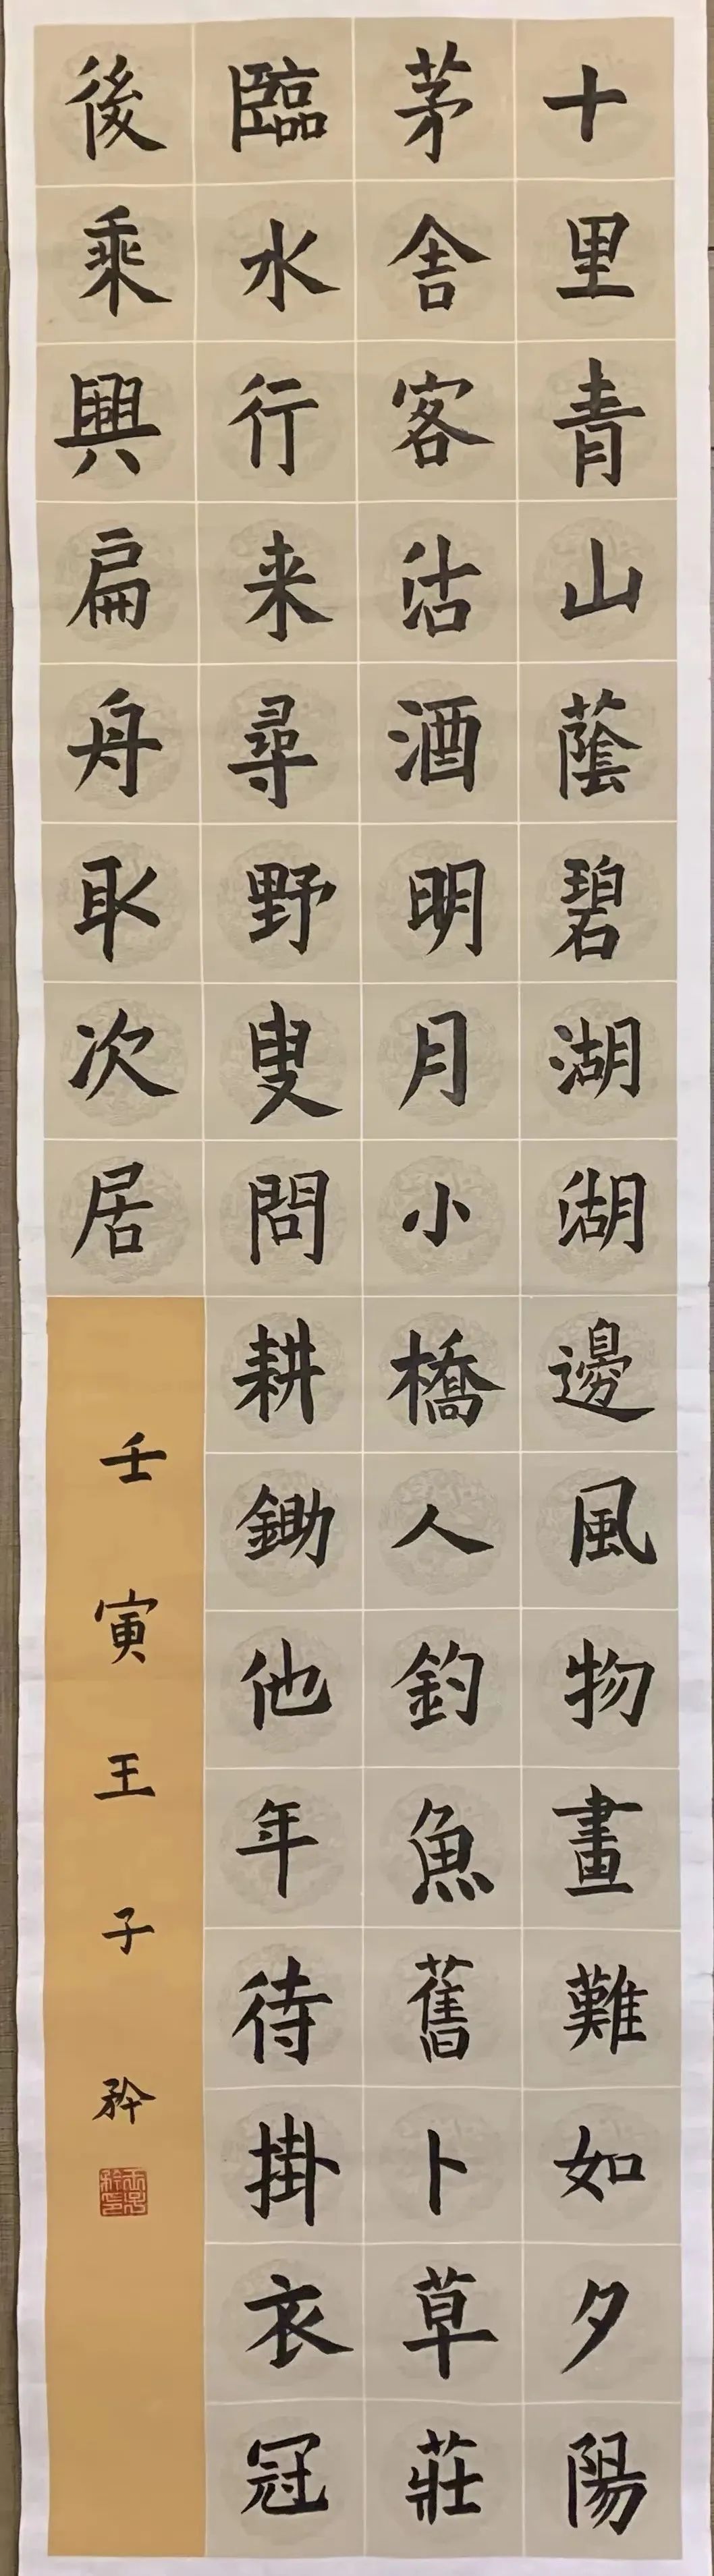 十里青山蔭碧湖湖邊風物畫難如夕陽
茅舍客沽酒明月小橋人釣魚舊卜草莊
臨水行来尋野叟問耕鋤他年待掛衣冠
後乘興扁舟取次居
壬寅王子矜